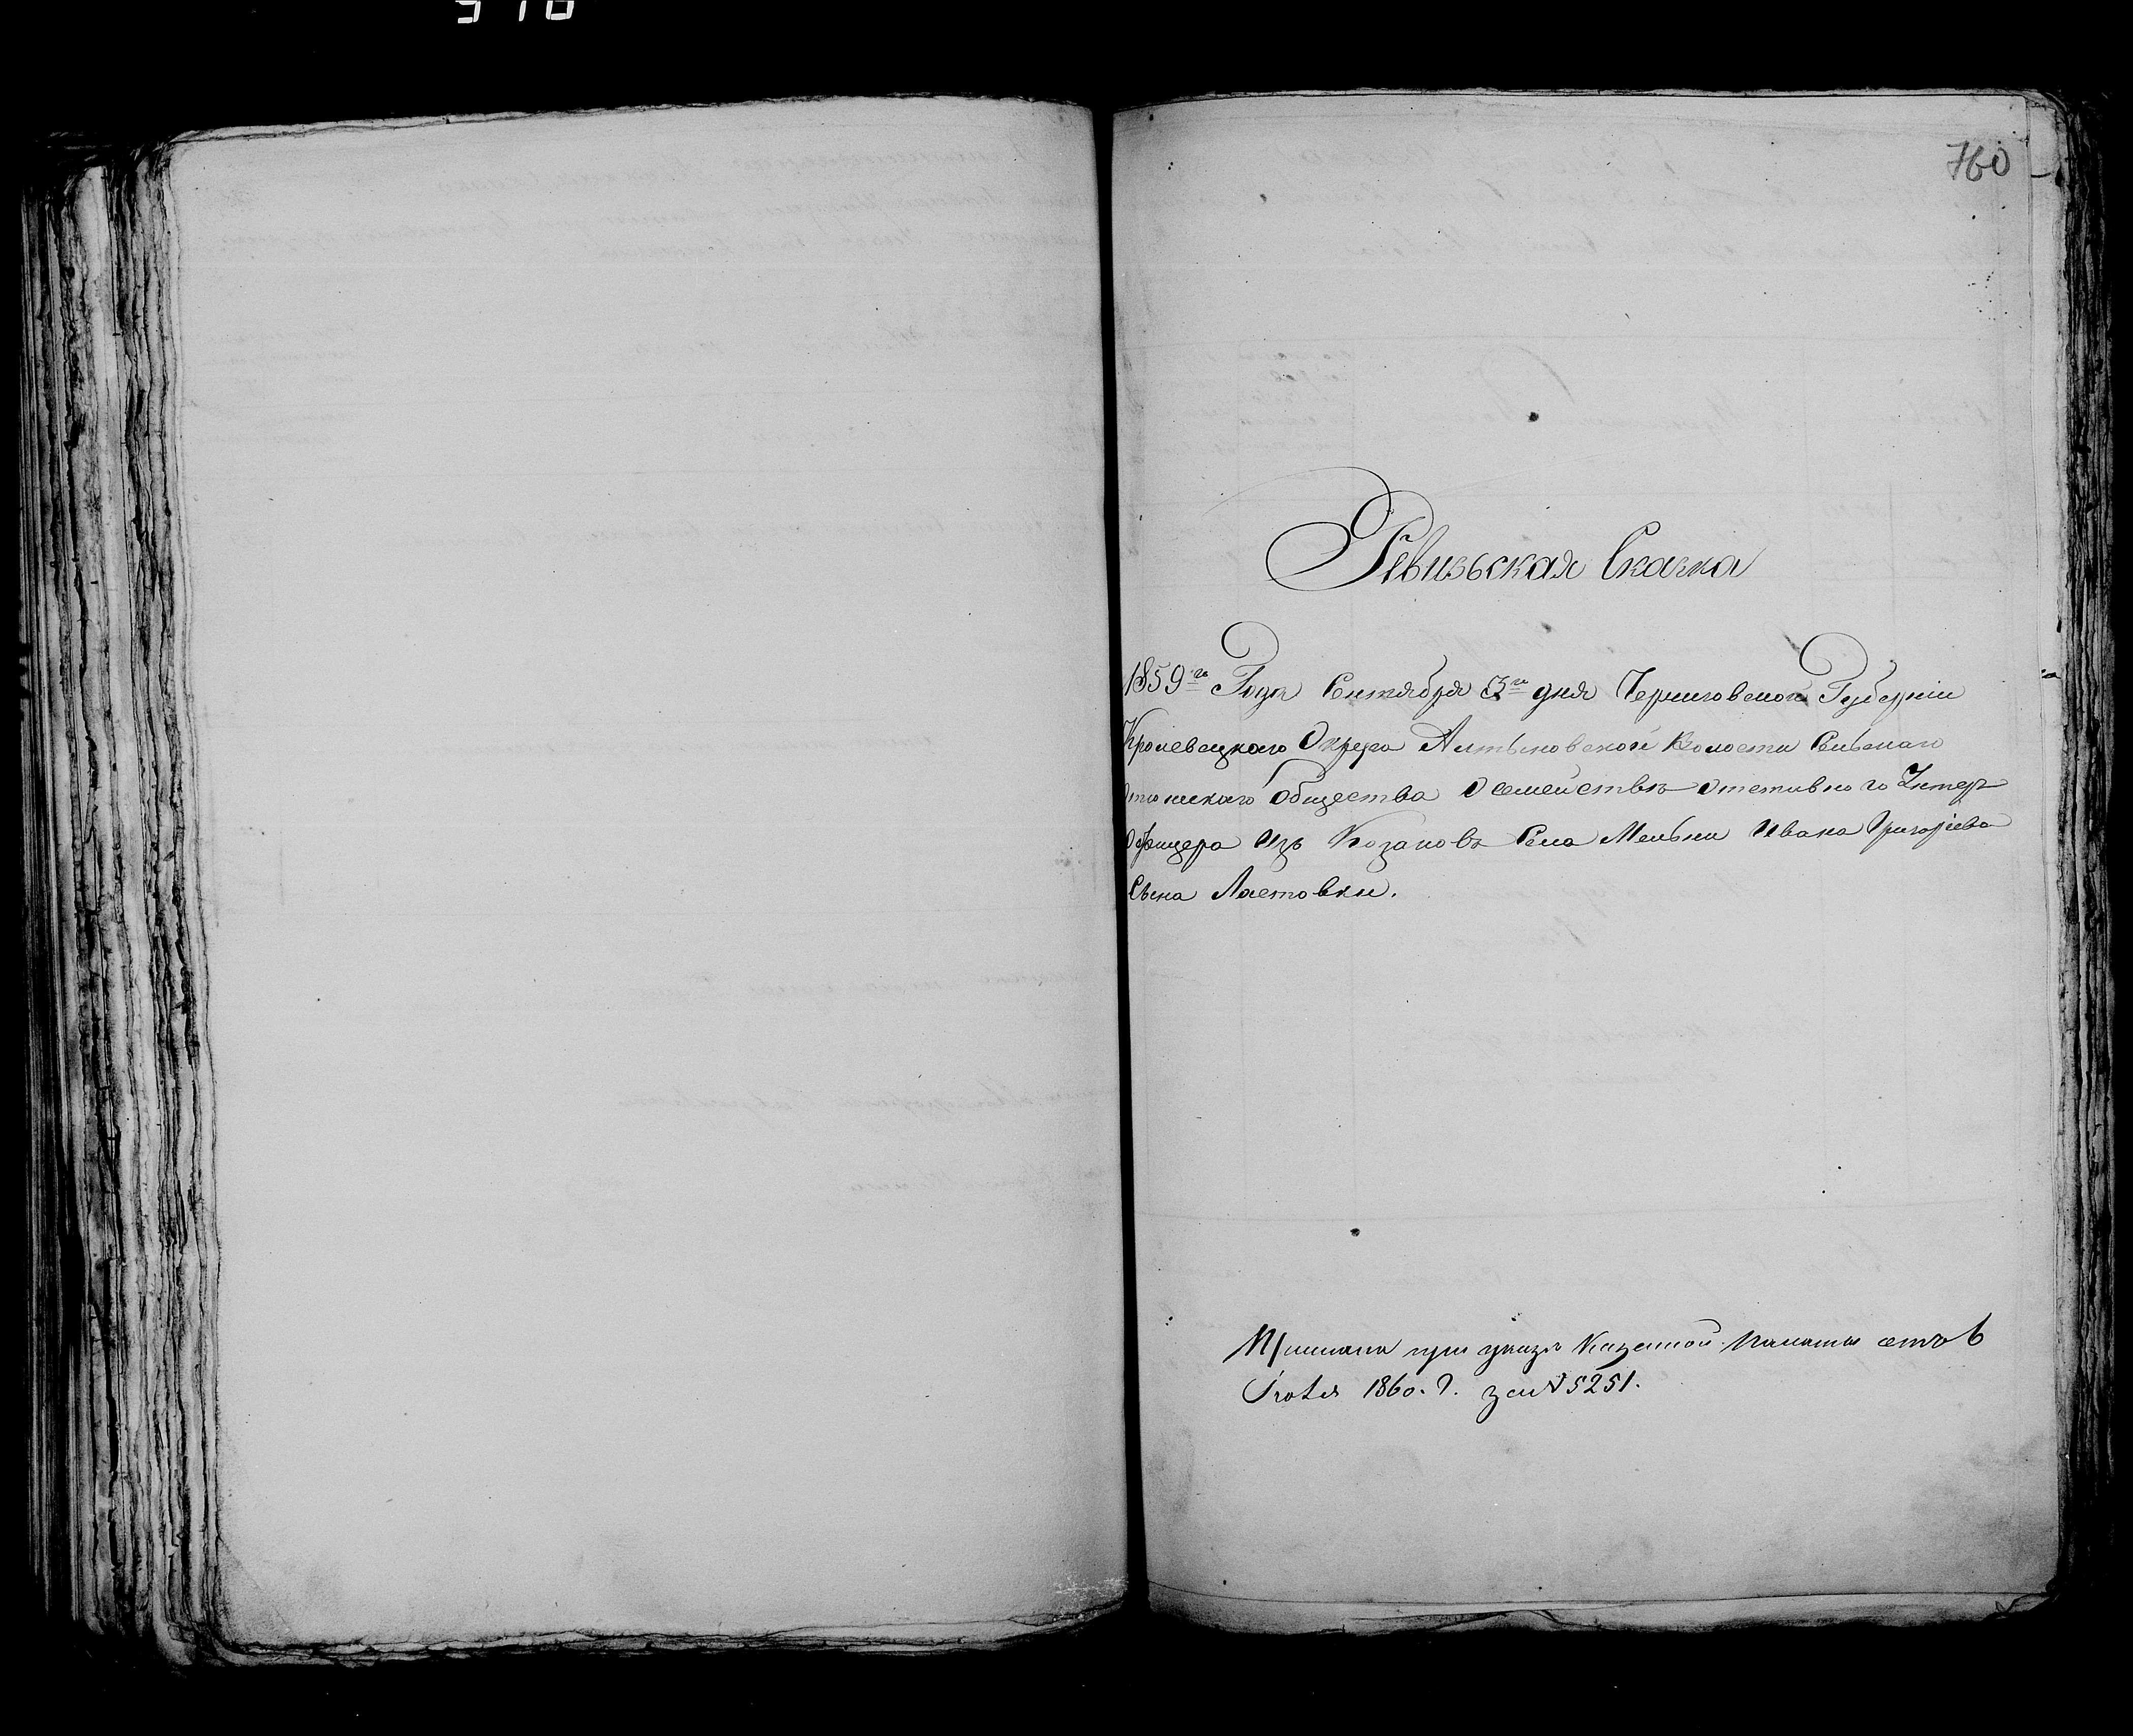 760
Ревизьская Скачка
1859го Года Сентября 3го дня Черниговской Губерніи
Кролевецкаго Округа Алтыновской Волости Сельскаго
общества О семействѣ отставного Унтер
Офицера Изъ Козаковъ Села Мельни Ивана Григоріева
Сына Ластовки.
при указѣ Казенной Палаты отъ 6
1860. г. за № 5251.